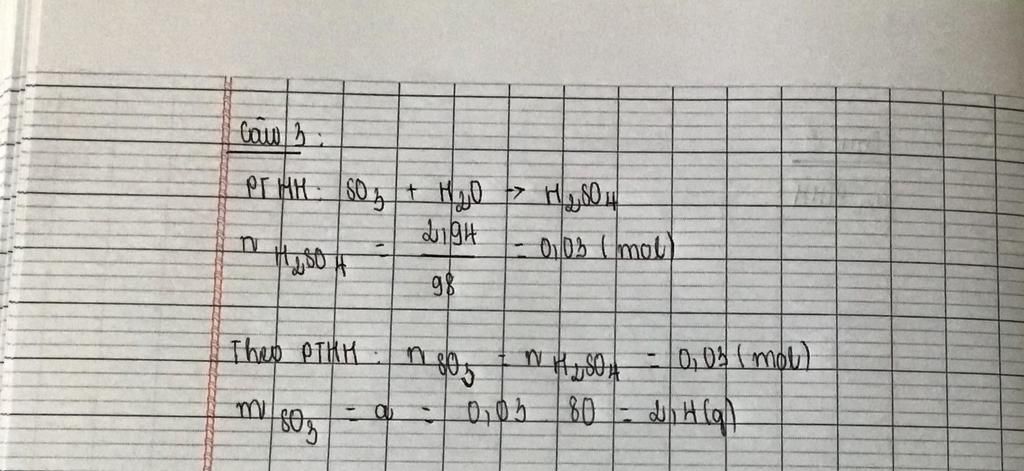 Câu 3:
PTHH: SO3 + H2O → H2SO4
n H2SO4 = 2,94 / 98 = 0,03 (mol)
Theo PTHH: n SO3 = n H2SO4 = 0,03 (mol)
m SO3 = a = 0,03 80 = 2,4 (g)